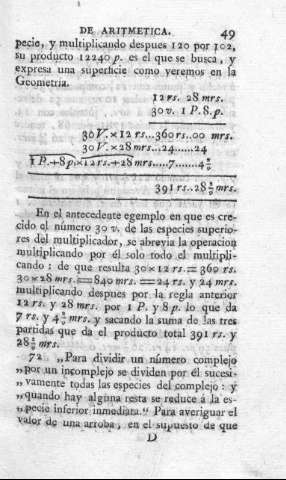 DE ARITMETICA. 49
pecie, y multiplicando despues 120 por 102,
su producto 12240 p. es el que se busca, y
expresa una superficie como veremos en la
Geometria.
12 rs. 28 mrs.
30 v. 1 P. 8 p.
30 V. × 12 rs...360 rs..00 mrs.
30 V. × 28 mrs...24......24
1 P. + 8 p. × 12 rs. + 28 mrs.....7.......4 2/9
391 rs..28 2/9 mrs.
En el antecedente egemplo en que es cre-
cido el número 30 v. de las especies superio-
res del multiplicador, se abrevia la operacion
multiplicando por él solo todo el multipli-
cando : de que resulta 30 × 12 rs. = 360 rs.
30 × 28 mrs. = 840 mrs. = 24 rs. y 24 mrs.
multiplicando despues por la regla anterior
12 rs. y 28 mrs. por 1 P. y 8 p. lo que da
7 rs. y 4 2/9 mrs. y sacando la suma de las tres
partidas que da el producto total 391 rs. y
28 2/9 mrs.
72 „Para dividir un número complejo
„por un incomplejo se dividen por él sucesi-
„vamente todas las especies del complejo : y
„quando hay alguna resta se reduce á la es-
„pecie inferior inmediata.“ Para averiguar el
valor de una arroba, en el supuesto de que
D